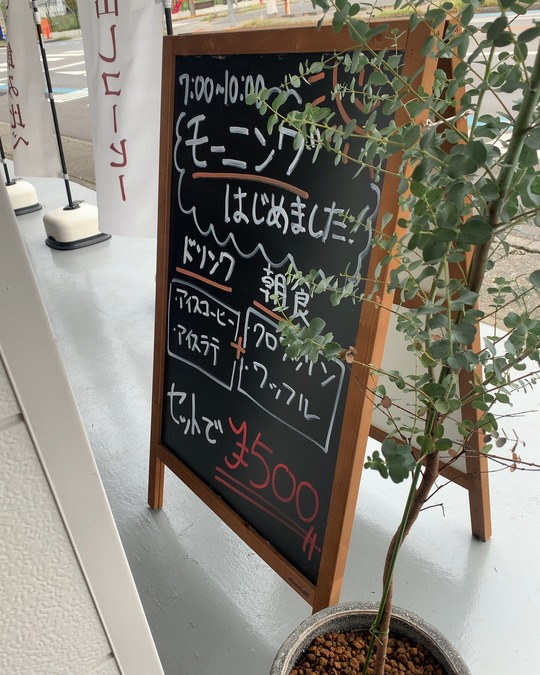 7:00~10:00
モーニング
はじめました!!
ドリンク
朝食
・アイスコーヒー
・アイスラテ
+
・ワッフル
セットで
¥500